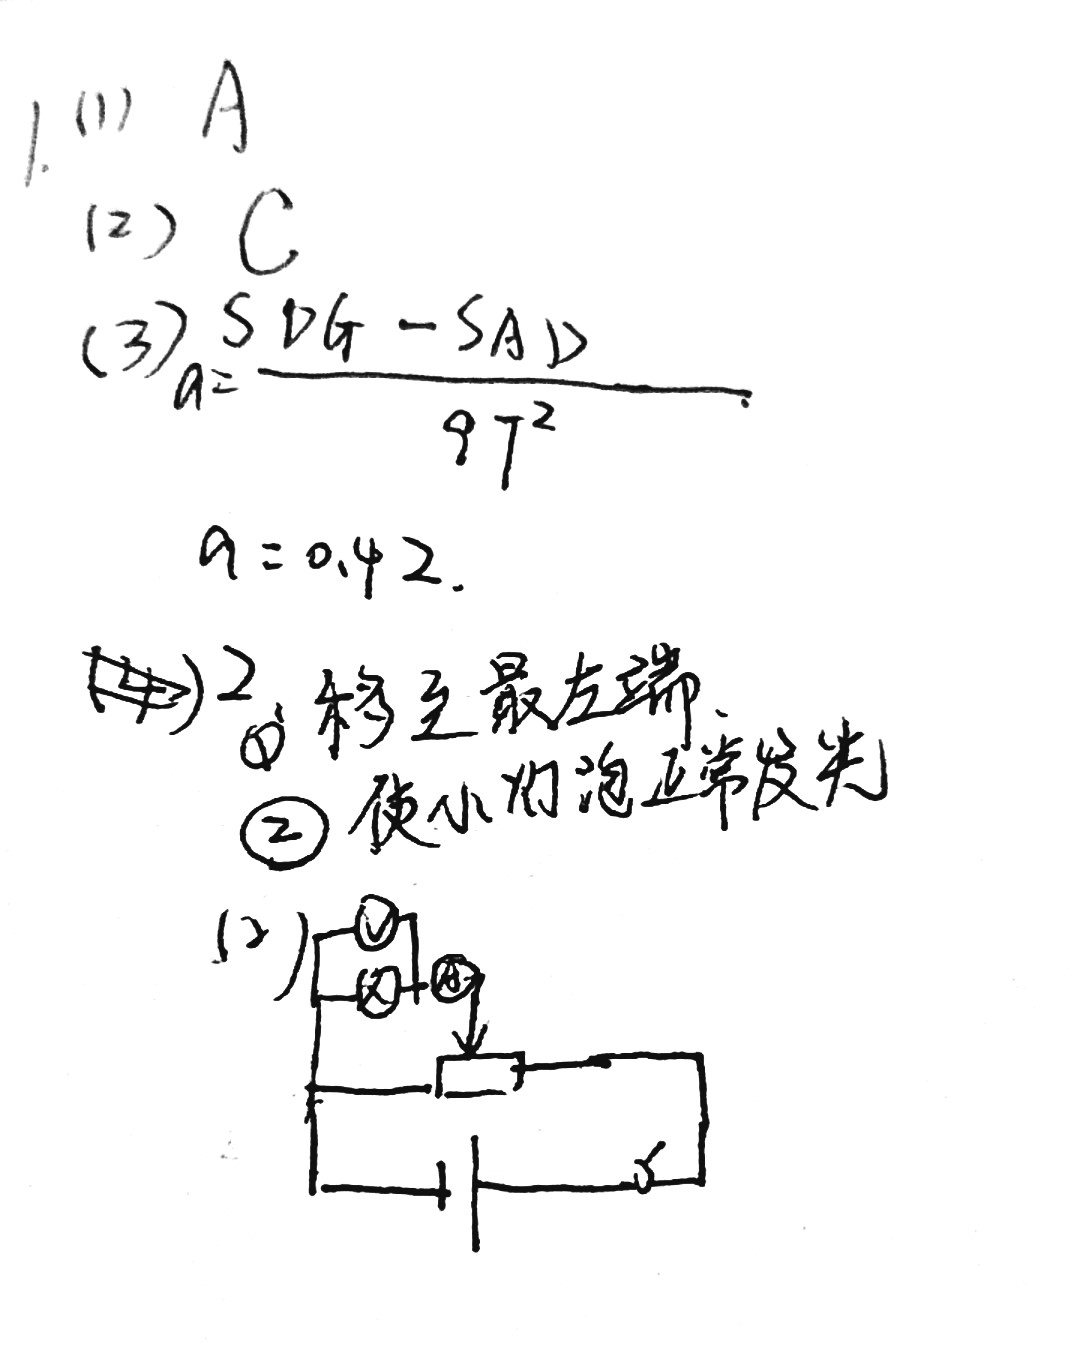 1. (1) A
(2) C
(3) a = SDG - SAD / 9T²
a = 0.42.
(4) 2
① 移至最左端.
② 使小灯泡正常发光
(2)
V
A